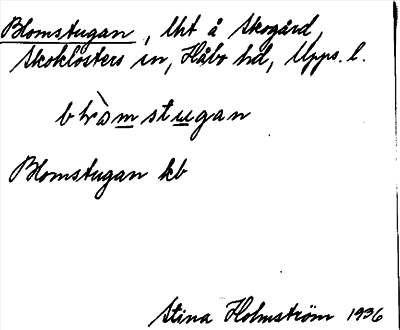 Blomstugan, lht å Skogård
Skoklosters sn, Håbo hd, Upps. l.
blòmstugan
Blomstugan kb
Stina Holmström 1936